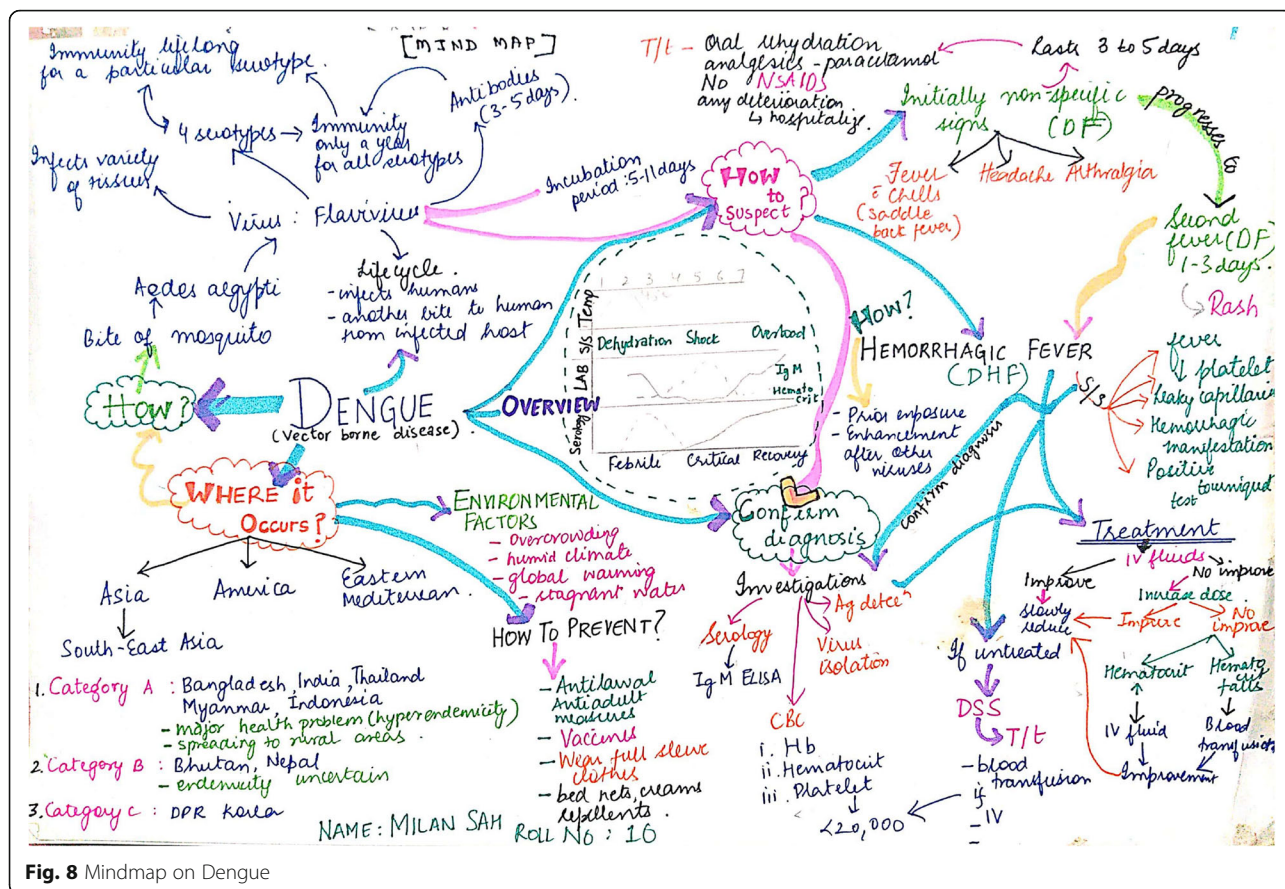 [MIND MAP]
Immunity lifelong
for a particular serotype.
4 serotypes
Immunity
only a year
for all serotypes
Antibodies
(3-5 days).
Infects variety
of tissues
Virus: Flavivirus
Incubation
period: 5-11 days
Aedes aegypti
Bite of mosquito
Lifecycle.
- infects humans
- another bite to human
from infected host
How?
DENGUE
(Vector borne disease).
OVERVIEW
WHERE it
Occurs?
Asia
America
Eastern
Mediterranean.
South-East Asia
1. Category A : Bangladesh, India, Thailand
Myanmar, Indonesia
- major health problem (hyperendemicity)
- spreading to rural areas.
2. Category B : Bhutan, Nepal
- endemicity uncertain
3. Category C : DPR Korea
ENVIRONMENTAL
FACTORS
- overcrowding
- humid climate
- global warming
- stagnant water
HOW TO PREVENT?
- Antilarval
Antiadult
measures
- Vaccines
- Wear full sleeve
clothes
- bed nets, creams
repellents.
NAME: MILAN SAH
ROLL NO: 16
T/t - Oral rehydration
analgesics - paracetamol
No NSAIDS
any deterioration
↳ hospitalize.
Lasts 3 to 5 days
HOW
to
Suspect?
Initially non-specific
signs (DF)
Fever
c̄ chills
(saddle
back fever)
Headache
Arthralgia
progresses to
Second
fever (DF)
1-3 days.
Rash
1 2 3 4 5 6 7
Temp
S/S
LAB
Serology
Dehydration Shock Overload
IgM
Hemato
crit
Febrile Critical Recovery
HOW?
- Prior exposure
- Enhancement
after other
viruses
HEMORRHAGIC FEVER
(DHF)
S/S
fever
↓ platelet
Leaky capillaries
Hemorrhagic
manifestation
Positive
tourniquet
test
confirm diagnosis
Confirm
diagnosis
Investigations
Serology
IgM ELISA
Ag detecⁿ
Virus
isolation
CBC
i. Hb
ii. Hematocrit
iii. Platelet
<20,000
If untreated
DSS
T/t
- blood
transfusion
if
- IV
-
Treatment
IV fluids
Improve
No improve
slowly
reduce
Increase dose
Improve
No
improve
Hematocrit
Hematocrit
falls
IV fluid
Blood
transfusion
Improvement
Fig. 8 Mindmap on Dengue